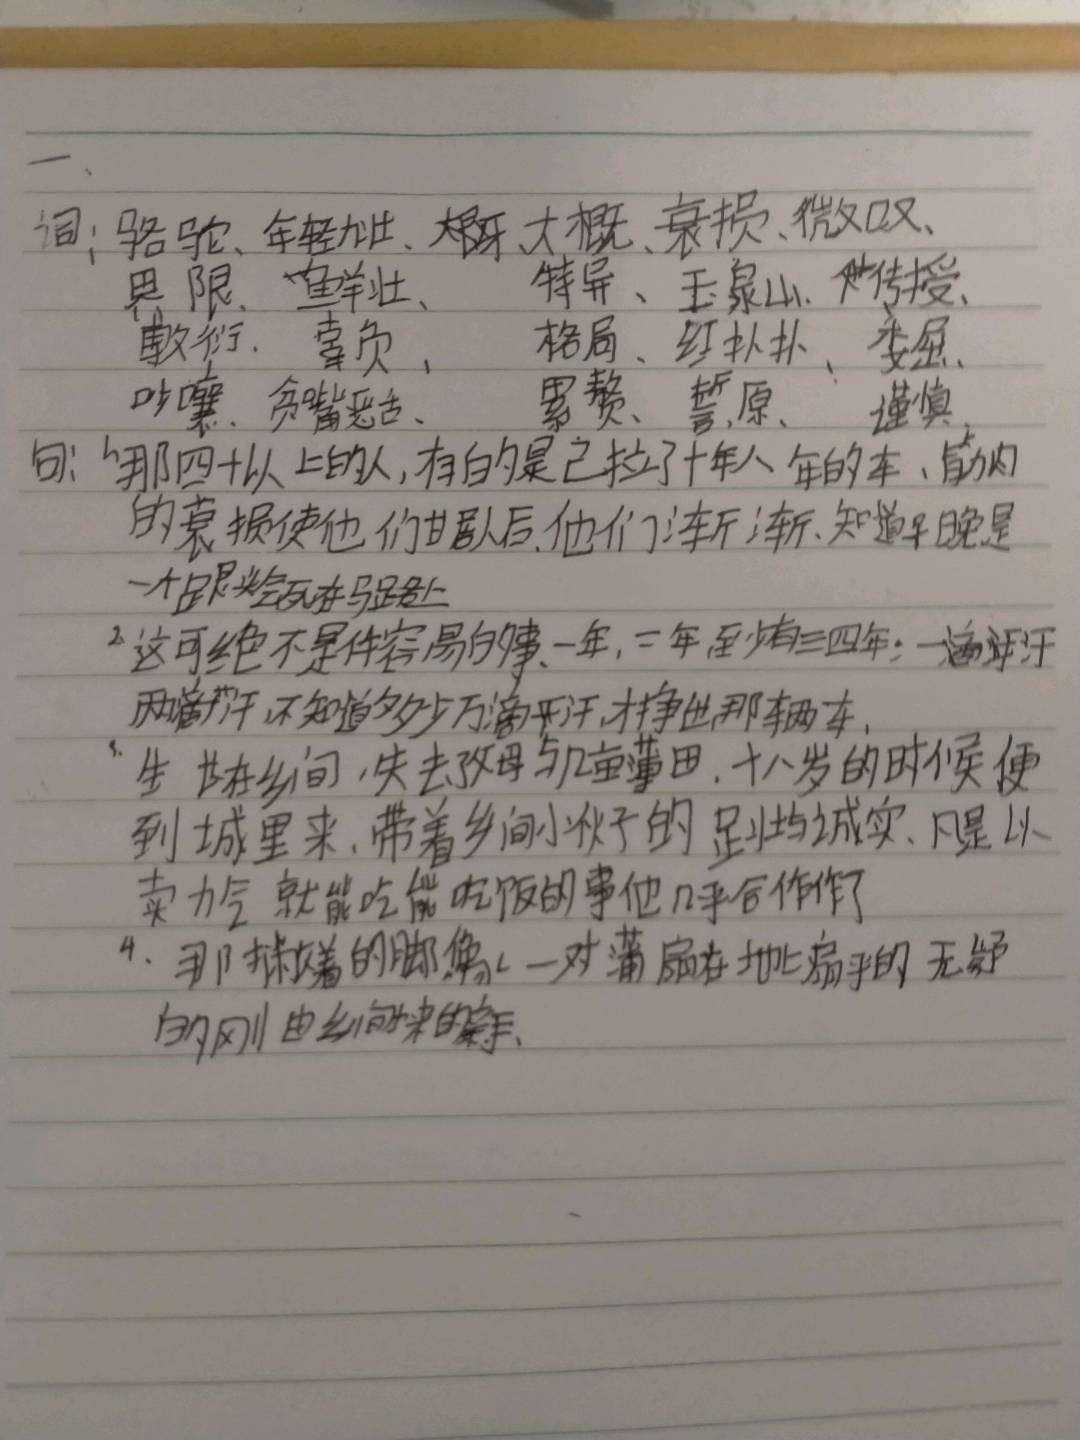 一、
词: 骆驼、年轻力壮、大概、衰损、微叹、
界限、鲜壮、特异、玉泉山、传授、
敷衍、辜负、格局、红扑扑、委屈、
吵嚷、贪嘴恶舌、累赘、誓愿、谨慎
句: 1、那四十以上的人,有的是已拉了十年八年的车、筋肉
的衰损使他们甘居人后、他们渐渐、知道早晚是
一个跟头会死在马路上
2、这可绝不是件容易的事、一年,二年至少有三四年;一滴汗
两滴汗,不知道多少万滴汗,才挣出那辆车,
3、生长在乡间,失去父母与几亩薄田,十八岁的时候便
到城里来,带着乡间小伙子的足壮与诚实、凡是以
卖力气就能吃能吃饭的事他几乎合作作了
4、那撇着的脚像一对蒲扇在地上扇乎的无疑
的刚由乡间来的新手、